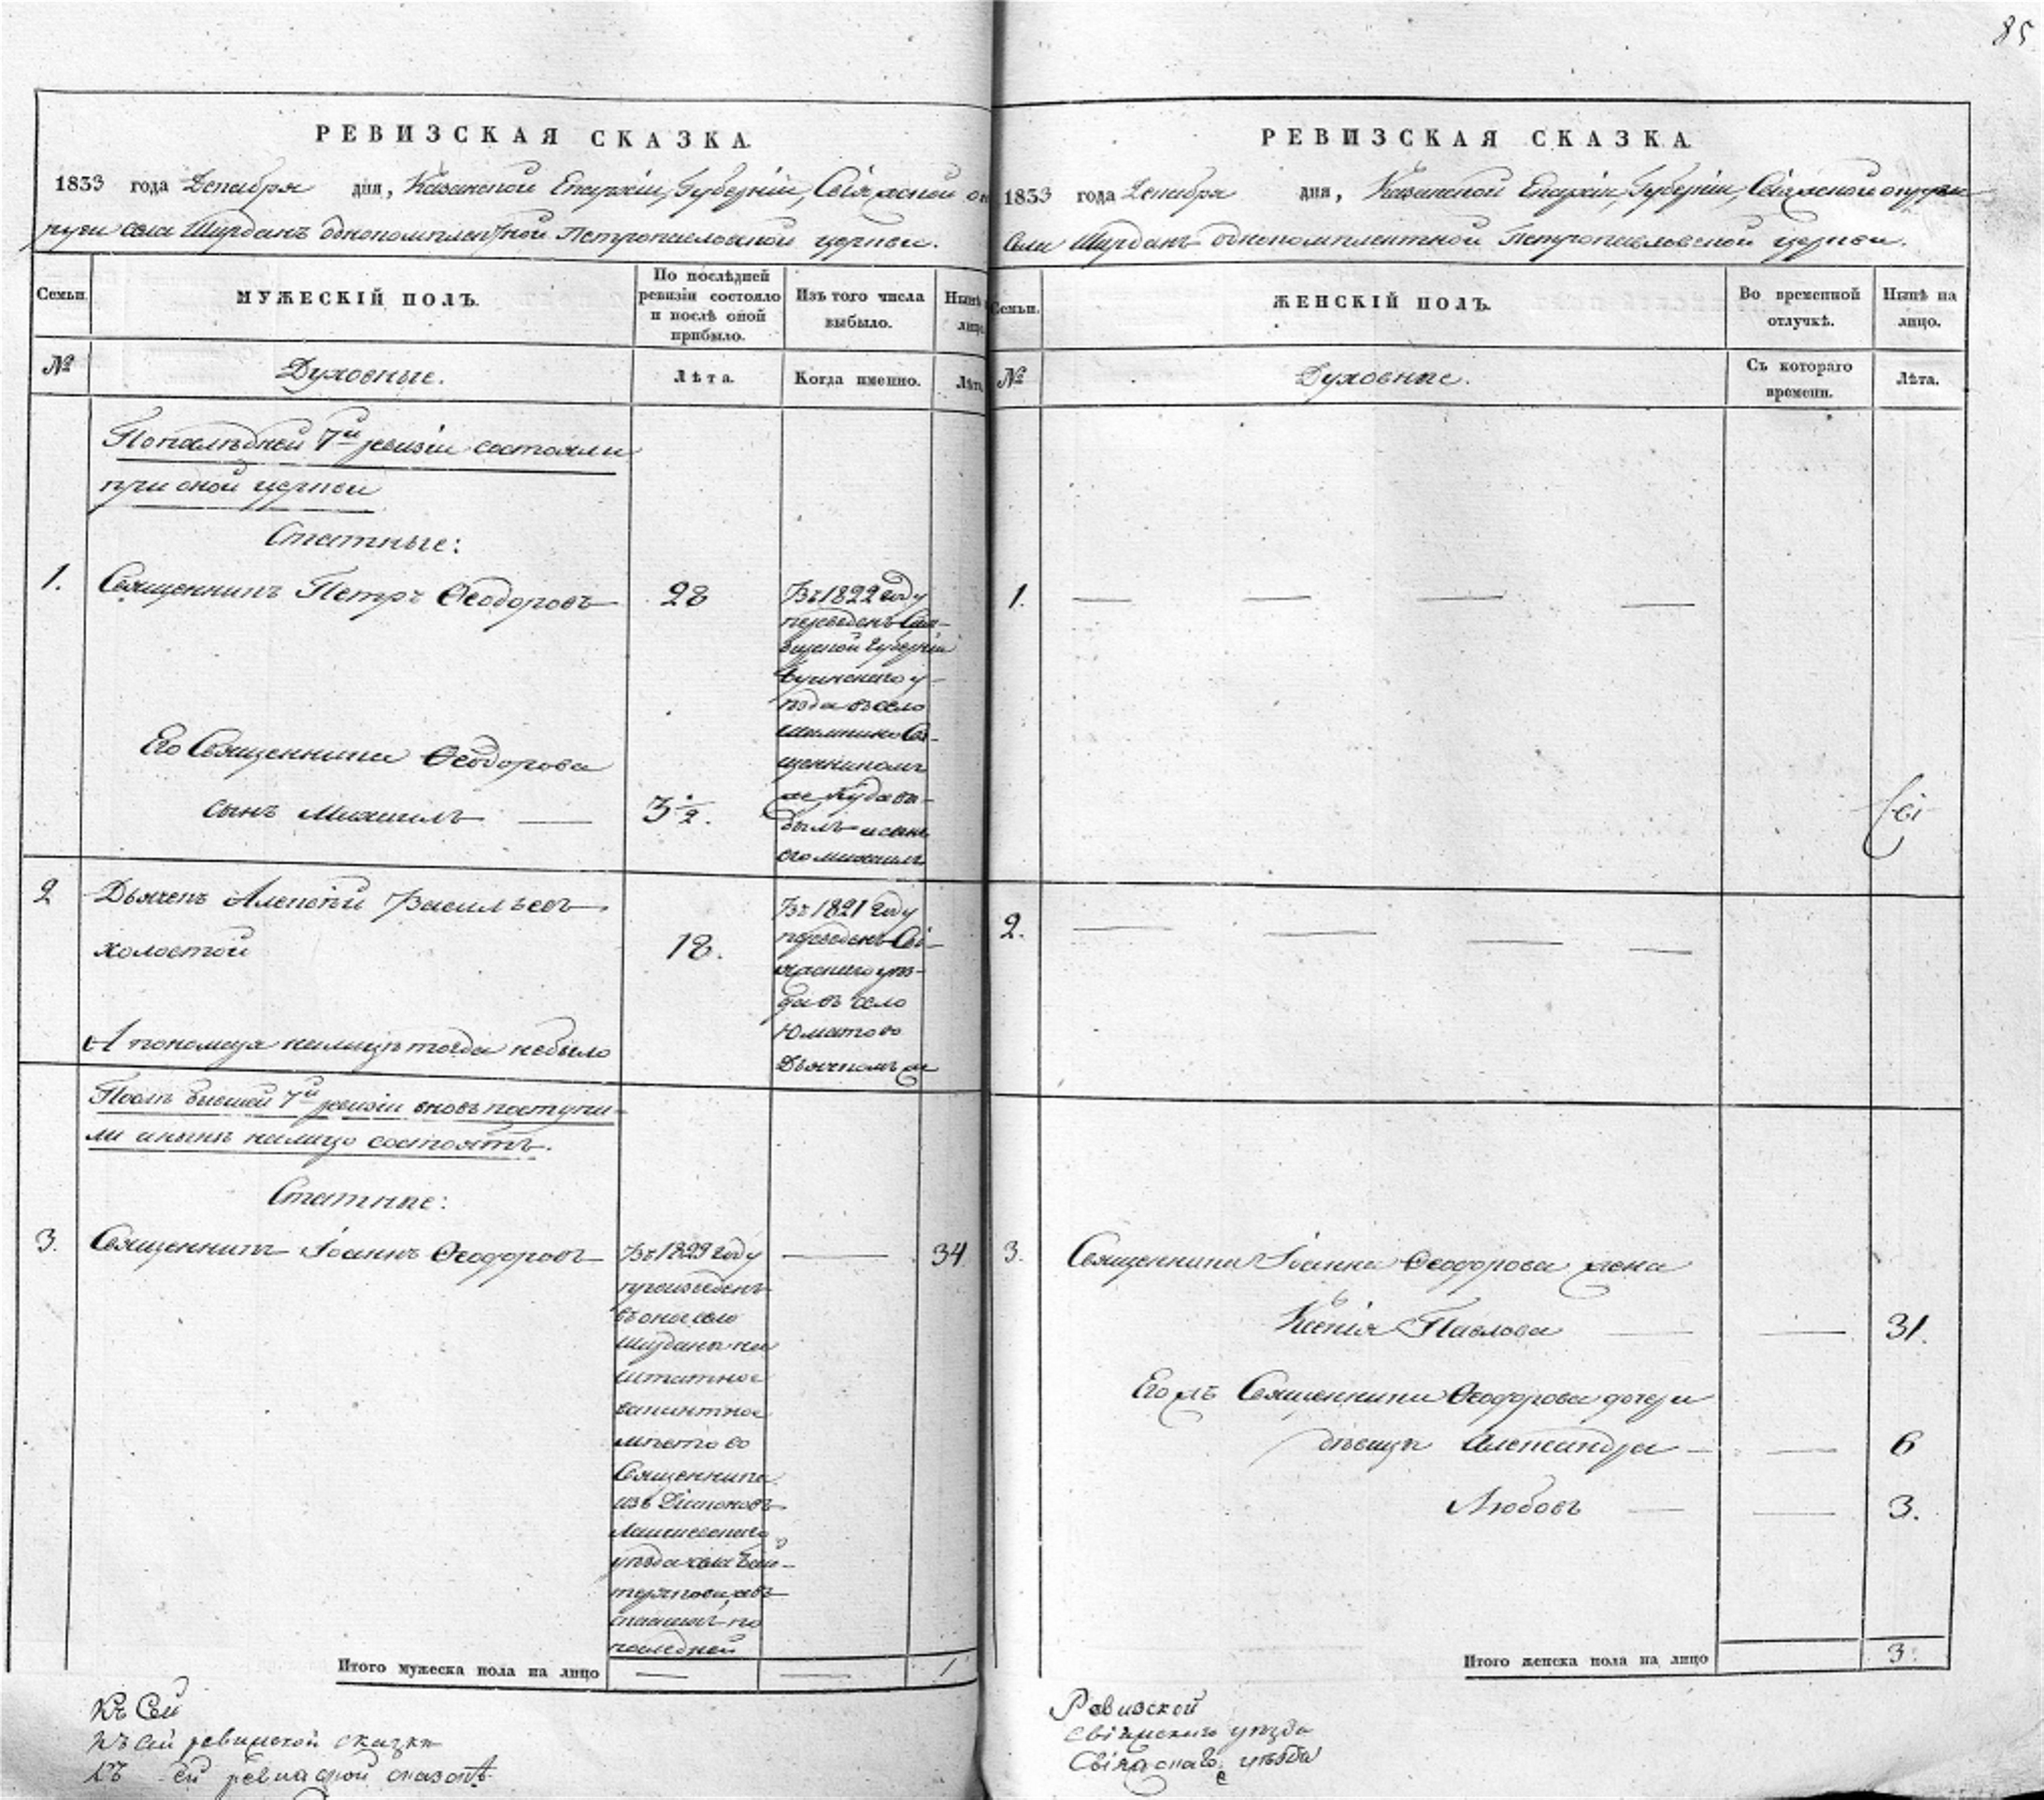 85
РЕВИЗСКАЯ СКАЗКА.
1833 года Декабря дня, Казанской Епархіи, Губерніи, Свіяжской ок
руги села Ширданъ однокомплектной Петропавловской церкви.
Семьи.
МУЖЕСКІЙ ПОЛЪ.
По послѣдней ревизіи состояло и послѣ оной прибыло.
Изъ того числа выбыло.
Нынѣ лицо
№
Духовные.
Лѣта.
Когда именно.
Лѣта
По послѣдней 7й ревизіи состояли
при оной церкви
Статные:
1. Священникъ Петръ Ѳеодоровъ 28
Въ 1822 году
переведенъ Сим-
бирской Губерніи
Буинскаго у-
ѣзда въ село
Свя-
щенникомъ
же куда вы-
былъ и сынъ
его Михаилъ
Его Священника Ѳеодорова
сынъ Михаилъ — 3 1/2.
2 Дьячекъ Алексѣй Васильевъ
холостой 18.
Въ 1821 году
переведенъ Свi-
яжскаго уѣз-
да въ село
Юматово
Дьячкомъ же
А пономаря налицѣ тогда небыло
Послѣ бывшей 7й ревизіи вновь поступи-
ли и нынѣ налицо состоятъ.
Статные:
3. Священникъ Іоаннъ Ѳеодоровъ — 34
Въ 1829 году
произведенъ
въ оное село
Ширданы на
штатное
мѣсто во
Священника
изъ Діаконовъ
Лаишевскаго
уѣзда села
по
последней
Итого мужеска пола на лицо — — 1
Къ Сей
къ сей ревизской сказки
къ сей ревизской сказкѣ
РЕВИЗСКАЯ СКАЗКА.
1833 года Декабря дня, Казанской Епархіи, Губерніи, Свіяжской округи
Села Ширданъ однокомплектной Петропавловской церкви.
Семьи.
ЖЕНСКІЙ ПОЛЪ.
Во временной отлучкѣ.
Нынѣ на лицо.
№
Духовные.
Съ котораго времени.
Лѣта.
1. — — — —
Сві
2. — — — —
3. Священника Іоанна Ѳеодорова жена
Ксенія Павлова — — 31.
Его жъ Священника Ѳеодорова дочери
дѣвицы Александра — — 6
Любовь — — 3.
Итого женска пола на лицо 3.
Ревизской
свіяжскаго уѣзда
Свіяжскаго уѣзда